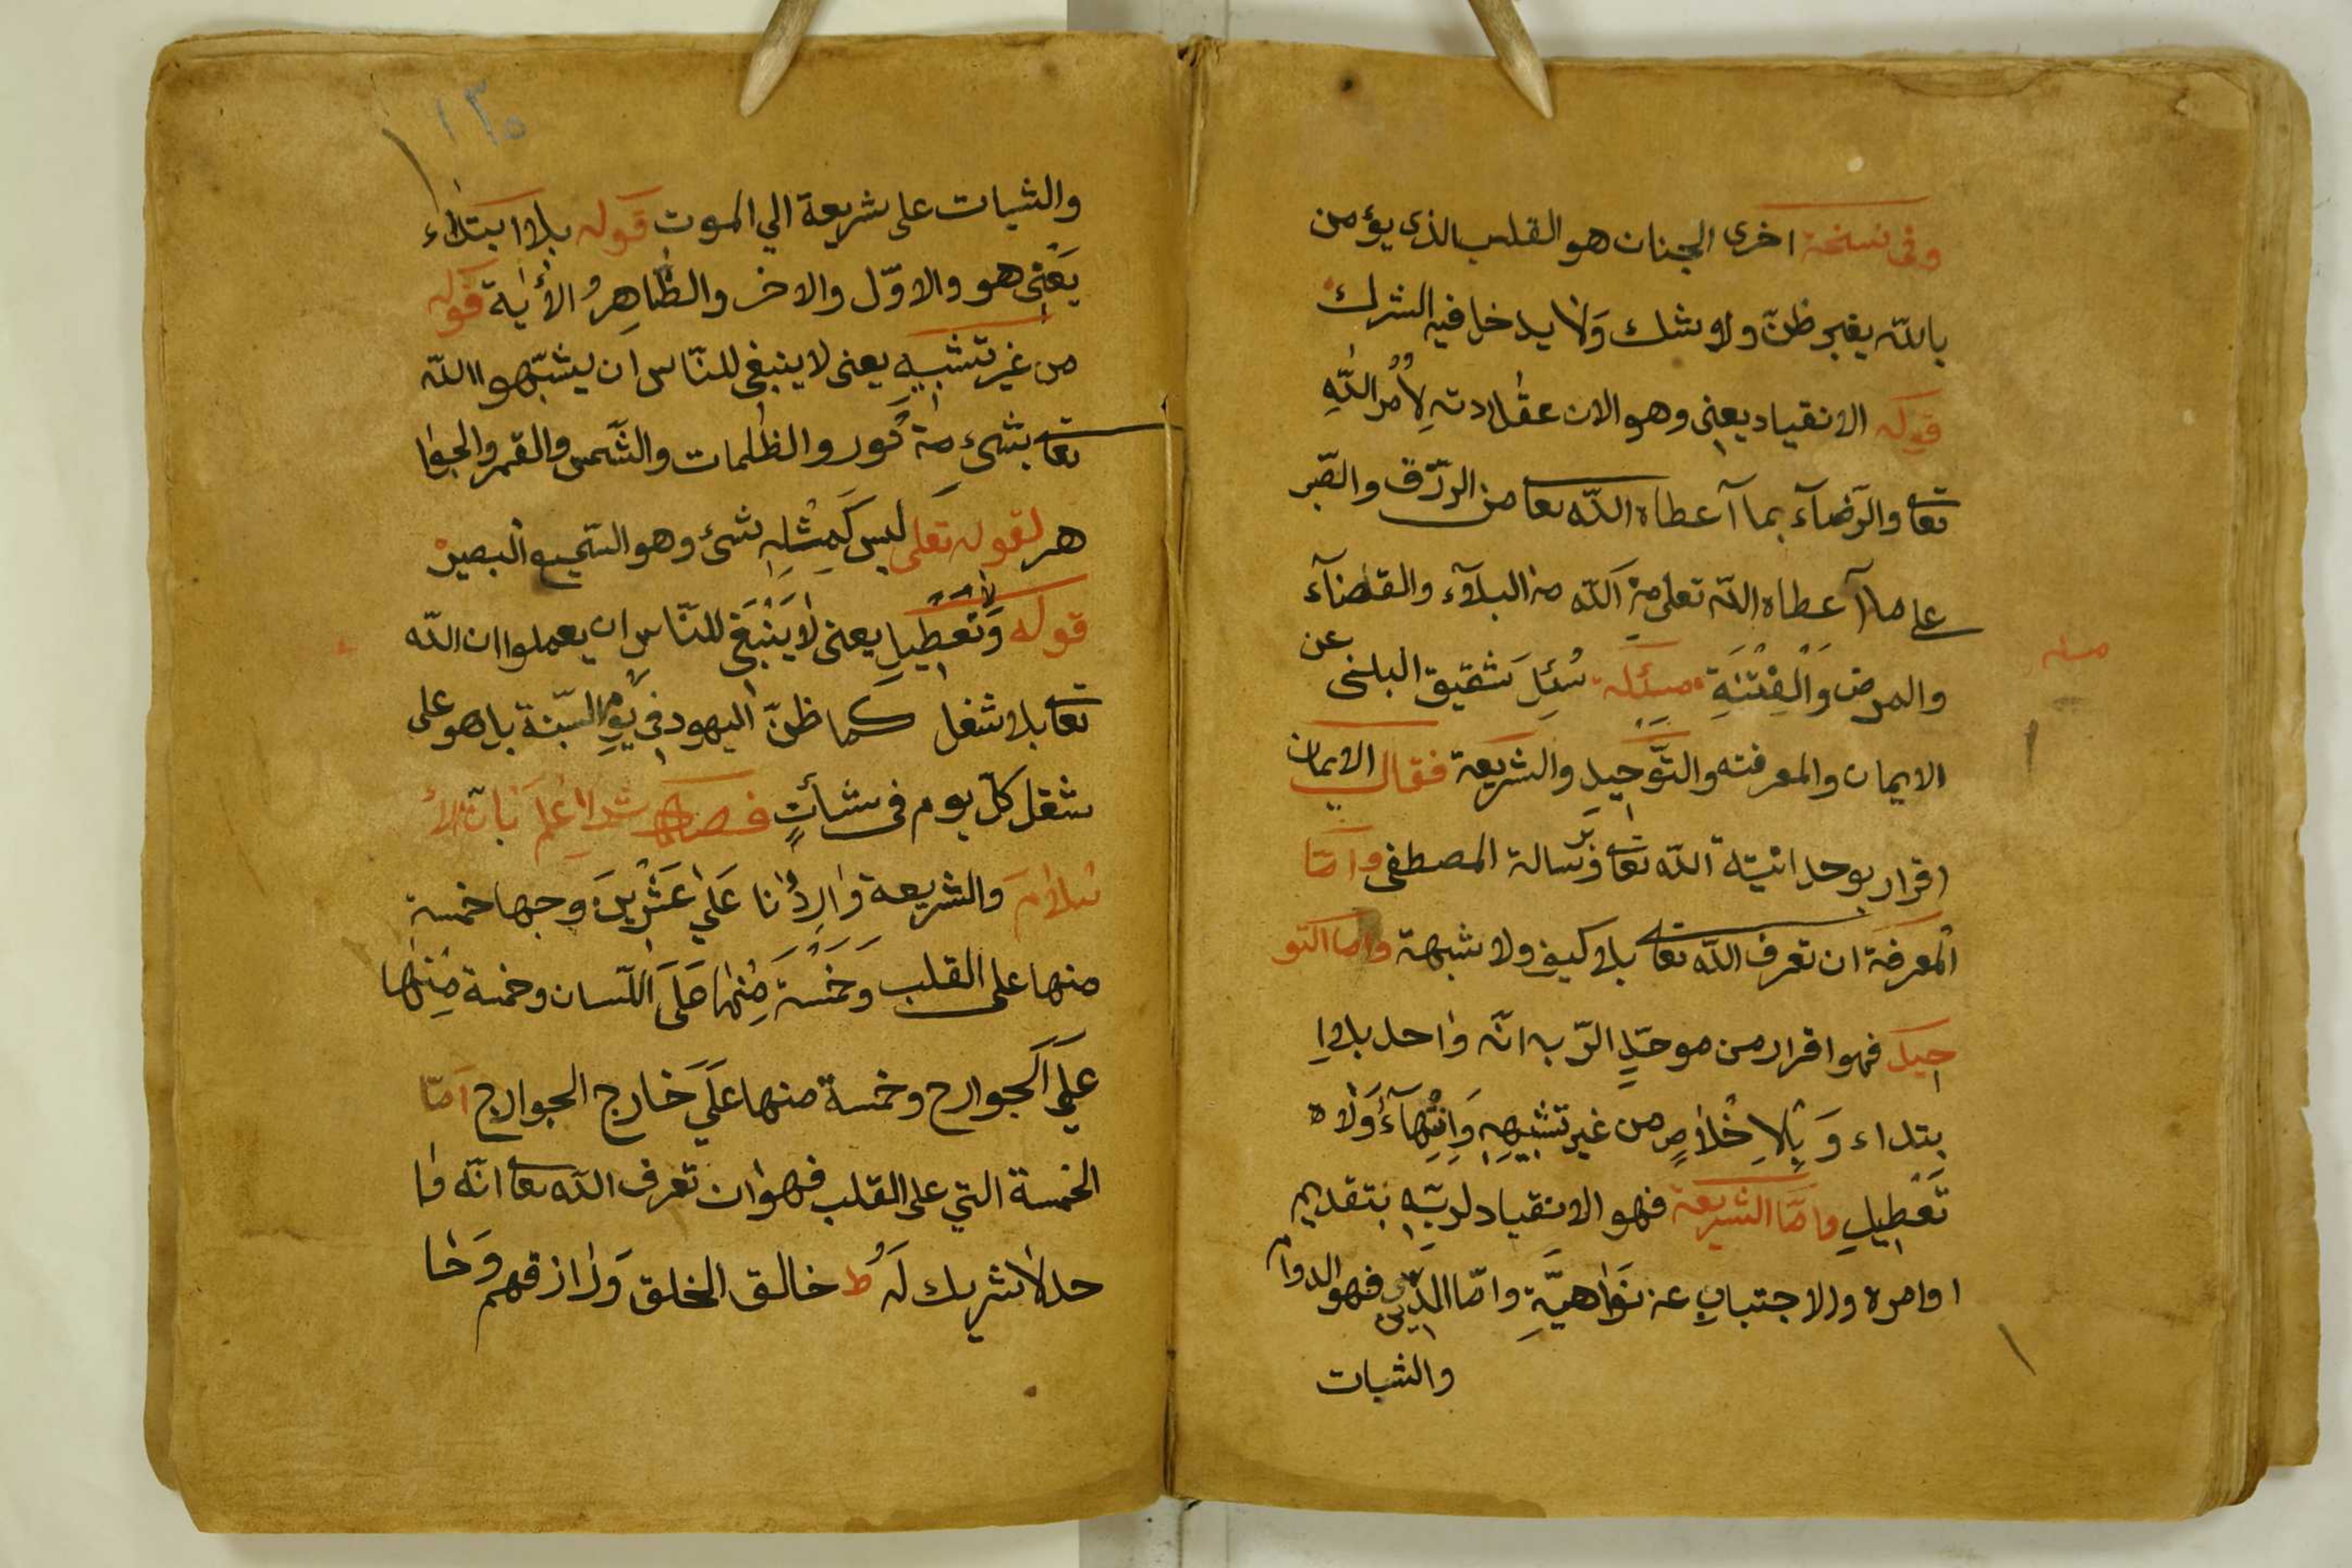 وفى نسخة اخرى الجنان هو القلب الذى يؤمن
بالله بغير ظنّ ولا شك وَلا يدخل فيه الشرك
قوله الانقياد يعنى وهو الان عقادته لِاَمُر اللّٰهِ
تعا والرّضآء بما آعطاه اللّه تعا من الرزق والصّبر
على ما آعطاه اللّه تعلى مِن اللّه من البلآء والقضآء
والمرض وَالْفِتْنَةِ مسئلة سُئِلَ شقيق البلخى عن
مسئله
الايمان والمعرفته والتّوحيدِ والشريعة فقال الايمان
اقرار بوحدانيّة اللّه تعا وبرسالة المصطفى وامّا
المعرفة ان تعرف اللّه تعا بلا كيف ولا شبهة واما التو
حيد فهوا قرار من موحّدٍ الرّب انّه واحد بلا اِ
بتداء وَبِالاِخْلاَصِ من غير تشبيهِ وَانْتِهآءُ وَلَاه
تَعْطيلِ وامّا الشريعة فهو الانقياد لربّه بتقديم
اوامره والاجتبابِ عن نَوَاهيَّةِ وامّا الدّين فهو الدوام
والشبات
١٣٥
والشبات على شريعة الي الموت قوله بلا ابتداء
يَعْنى هو والاوّل والاخر والظّاهِرُ الأية قوله
من غير تشبيهِ يعنى لا ينبغى للنّاس ان يشبّهوا اللّه
تعا بشىءٍ مِن نُور والظلمات والشّمس والقمر والجوا
هر لقوله تعلى ليس كَمِثْلِهِ شىءٌ وهو السّميع البصير
قوله وَتَعْطِيلِ يعنى لا يَنْبَغى للنّاس ان يعملوا ان اللّه
تعا بلا شغل كما ظنّ اليهود في يوم السّبتة بل هو على
شغل كلّ يوم فى شأنٍ فصل اعلم بانّ الأ
سلامَ والشريعة وارِدُنا عَلَي عَشْرِينَ وجها خمسة
منها على القلب وَخَمْسَةَ مِنْها عَلَي اللّسان وخمسة مِنْها
عَلَي الْجوارح وخمسة منها عَلَي خارج الجوارح امّا
الخمسة التي على القلب فهو ان تعرف اللّه تعا انّه وا
حد لا شريك لَهُ ط خالق الخلق وَرازقهم وَحا